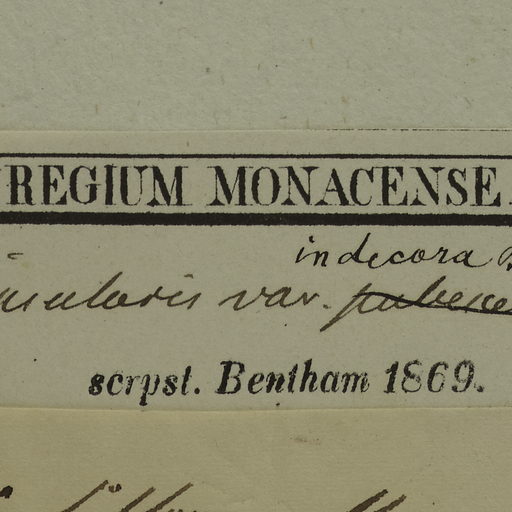 REGIUM MONACENSE.
indecora B
cularis var. pubesce
scrpst. Bentham 1869.